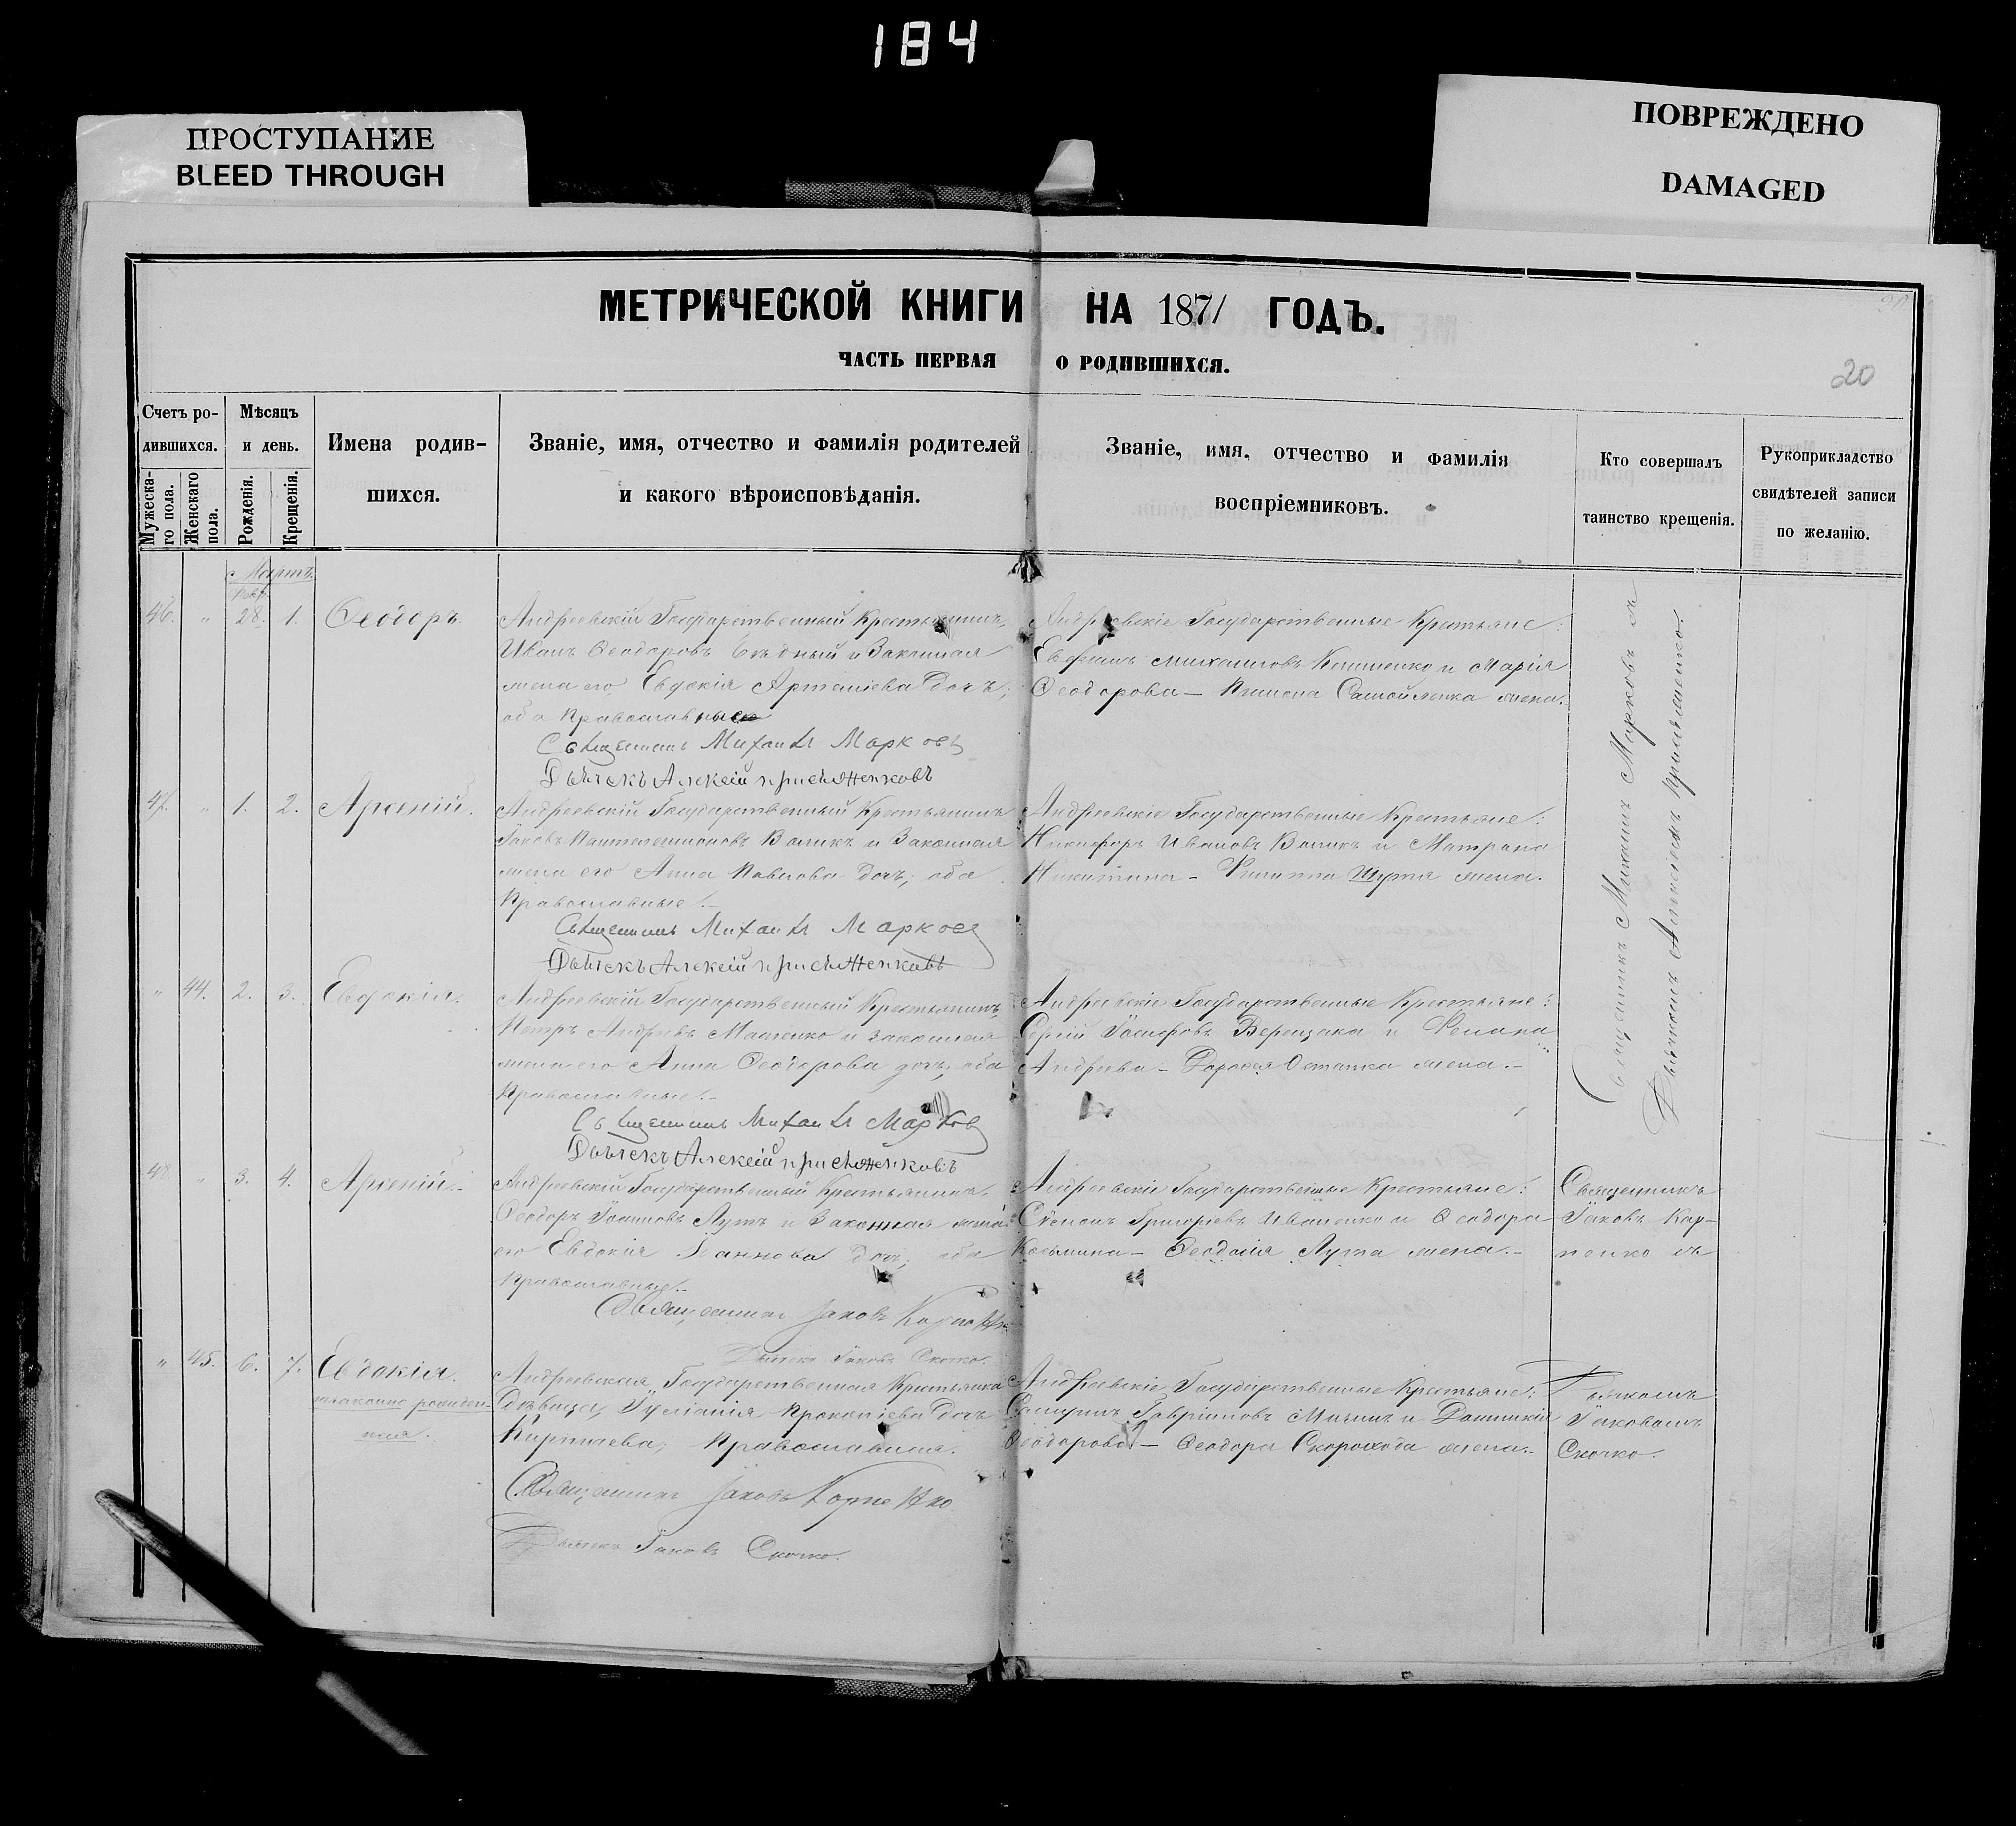 184
ПРОСТУПАНИЕ
BLEED THROUGH
ПОВРЕЖДЕНО
DAMAGED
МЕТРИЧЕСКОЙ КНИГИ НА 1871 ГОДЪ.
ЧАСТЬ ПЕРВАЯ О РОДИВШИХСЯ.
20
Счетъ ро-
дившихся.
Мужеска-
го пола.
Женскаго
пола.
Мѣсяцъ
и день.
Рожденія.
Крещенія.
Имена родив-
шихся.
Званіе, имя, отчество и фамилія родителей
и какого вѣроисповѣданія.
Званіе, имя, отчество и фамилія
воспріемниковъ.
Кто совершалъ
таинство крещенія.
Рукоприкладство
свидѣтелей записи
по желанію.
Мартъ
46. " 28. 1. Ѳеодоръ
Андреевскій Государственный Крестьянинъ,
Иванъ Ѳеодоровъ Бѣдный и Законная
жена его Евдокія Артеміева дочь;
оба Православные
Священникъ Михаилъ Марковъ
Дьячекъ Алексій Присяженковъ
Андреевскіе Государственные Крестьяне:
Евфимъ Михаиловъ и Марія
Ѳеодорова – Самойленка жена.
Священникъ Михаилъ Марковъ съ
Дьячкомъ Алексіемъ
47. " 1. 2. Арсеній.
Андреевскій Государственный Крестьянинъ
Іаковъ Пантелеимоновъ Воликъ и Законная
жена его Анна Павлова дочь; оба
Православные.–
Священникъ Михаилъ Марковъ
Дьячекъ Алексій Присяженковъ
Андреевскіе Государственные Крестьяне:
Никифоръ Ивановъ Воликъ и Матрона
Никитина – Филиппа Шутя жена.
" 44. 2. 3. Евдокія.
Андреевскій Государственный Крестьянинъ,
Петръ Андреевъ и законная
жена его Анна Ѳеодорова дочь; оба
Православные.–
Священникъ Михаилъ Марковъ
Дьячекъ Алексій Присяженковъ
Андреевскіе Государственные Крестьяне:
Сергій Іосифовъ Верещака и
Андреева – жена.–
48. " 3. 4. Арсеній.–
Андреевскій Государственный Крестьянинъ,
Ѳеодоръ Іоанновъ Лутъ и Законная жена
его Евдокія Іоаннова дочь; оба
Православные.–
Священникъ Іаковъ Карпенко
Дьячекъ Іаковъ Скочко.
Андреевскіе Государственные Крестьяне:
Сѵмеонъ Григоріевъ Иваненко и Ѳеодора
Косьмина – Ѳеодосія Лута жена.–
Священникъ
Іаковъ Кар-
пенко съ
" 45. 6. 7. Евдокія.
незаконно рожден-
ная.
Андреевская Государственная Крестьянка
Дѣвица, Іуліанія Прокопіева дочь
Кирпичева; Православная.
Священникъ Іаковъ Карпенко
Дьячекъ Іаковъ Скочко.
Андреевскіе Государственные Крестьяне:
Гавріиловъ и Домникія
Ѳеодорова – Ѳеодора Скорохода жена.–
Дьячкомъ
Іаковомъ
Скочко.